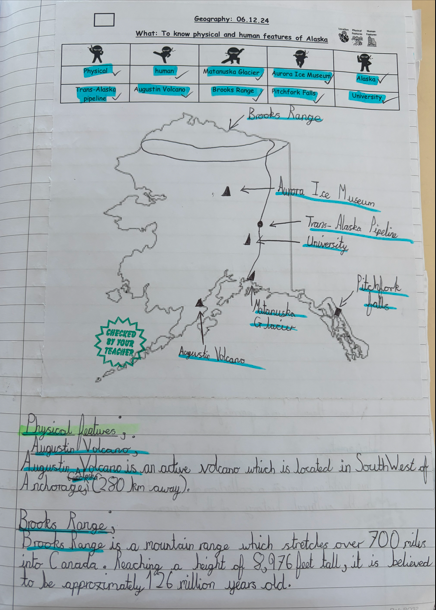 Geography: 06.12.24
What: To know physical and human features of Alaska
Physical human Matanuska Glacier Aurora Ice Museum Alaska
Trans-Alaska pipeline Augustin Volcano Brooks Range Pitchfork Falls University
Brooks Range
Aurora Ice Museum
Trans-Alaska Pipeline
University
Pitchfork
falls
Matanuska
Glacier
CHECKED
BY YOUR
TEACHER
Auguste Volcano
Physical features;
Augustin Volcano;
Augustin Volcano is an active volcano which is located in SouthWest of
Anchorage, (280 km away).
Brooks Range;
Brooks Range is a mountain range which stretches over 700 miles
into Canada. Reaching a height of 8,976 feet tall, it is believed
to be approximately 126 million years old.